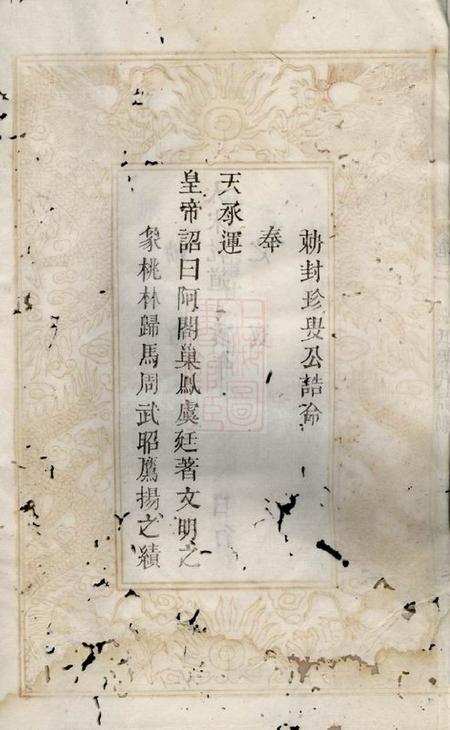 勅封珍叟公誥命
奉
天承運
皇帝詔曰阿閣巢鳳虞廷著文明之
象桃林歸馬周武昭鷹揚之績